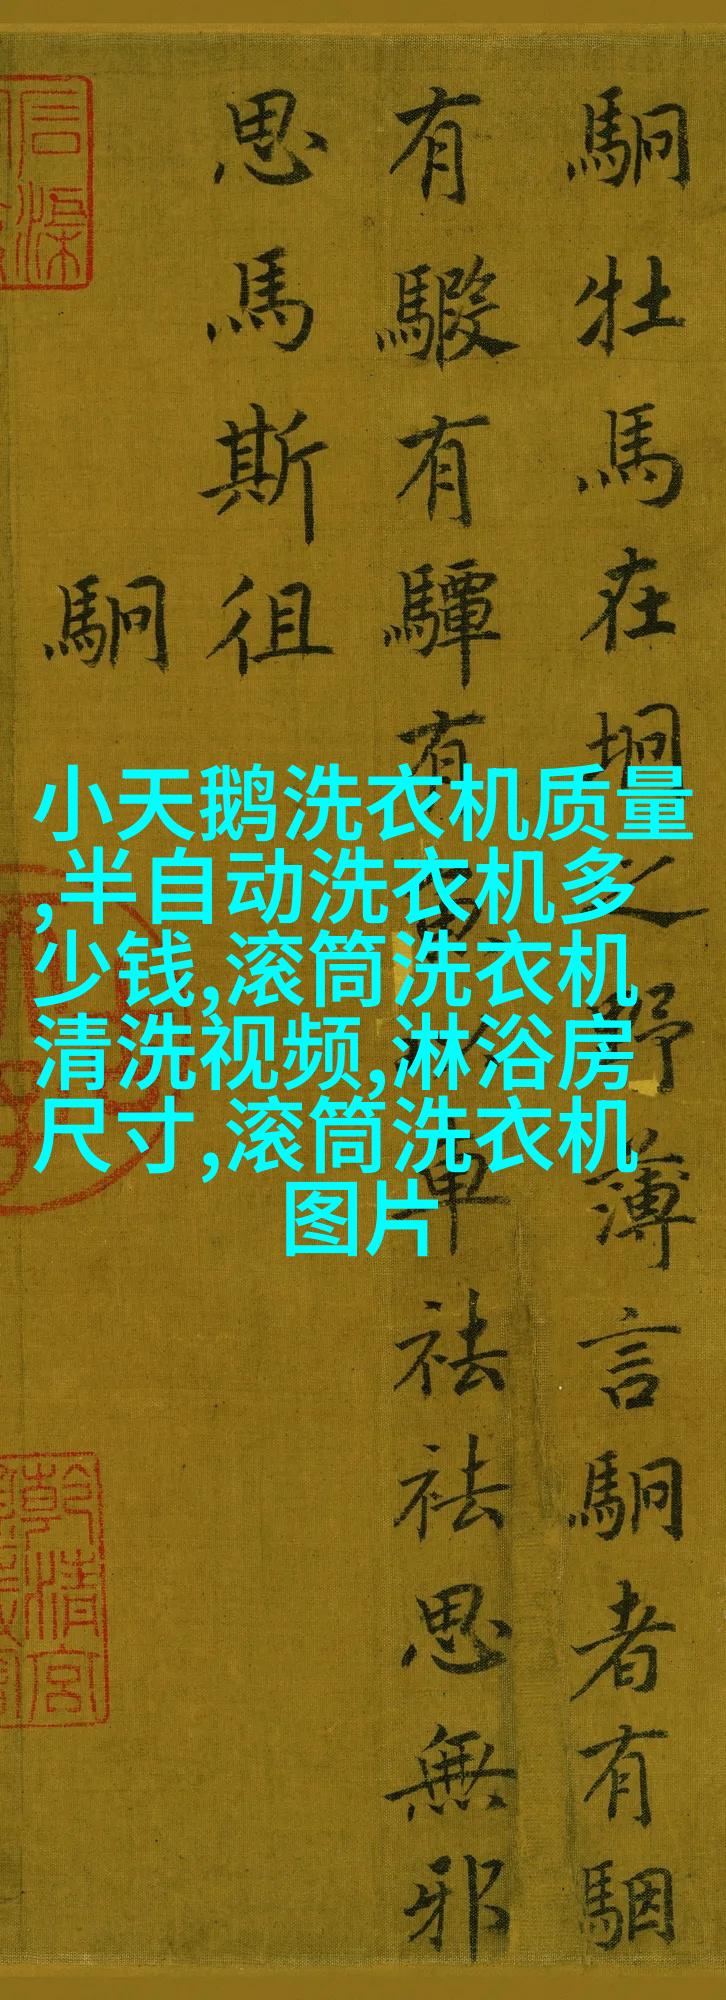 駉牡馬在坰之野薄言駉者有駰
有騢有驔有魚以車祛祛思無邪
思馬斯徂
駉
小天鹅洗衣机质量
,半自动洗衣机多
少钱,滚筒洗衣机
清洗视频,淋浴房
尺寸,滚筒洗衣机
图片
乾清宮